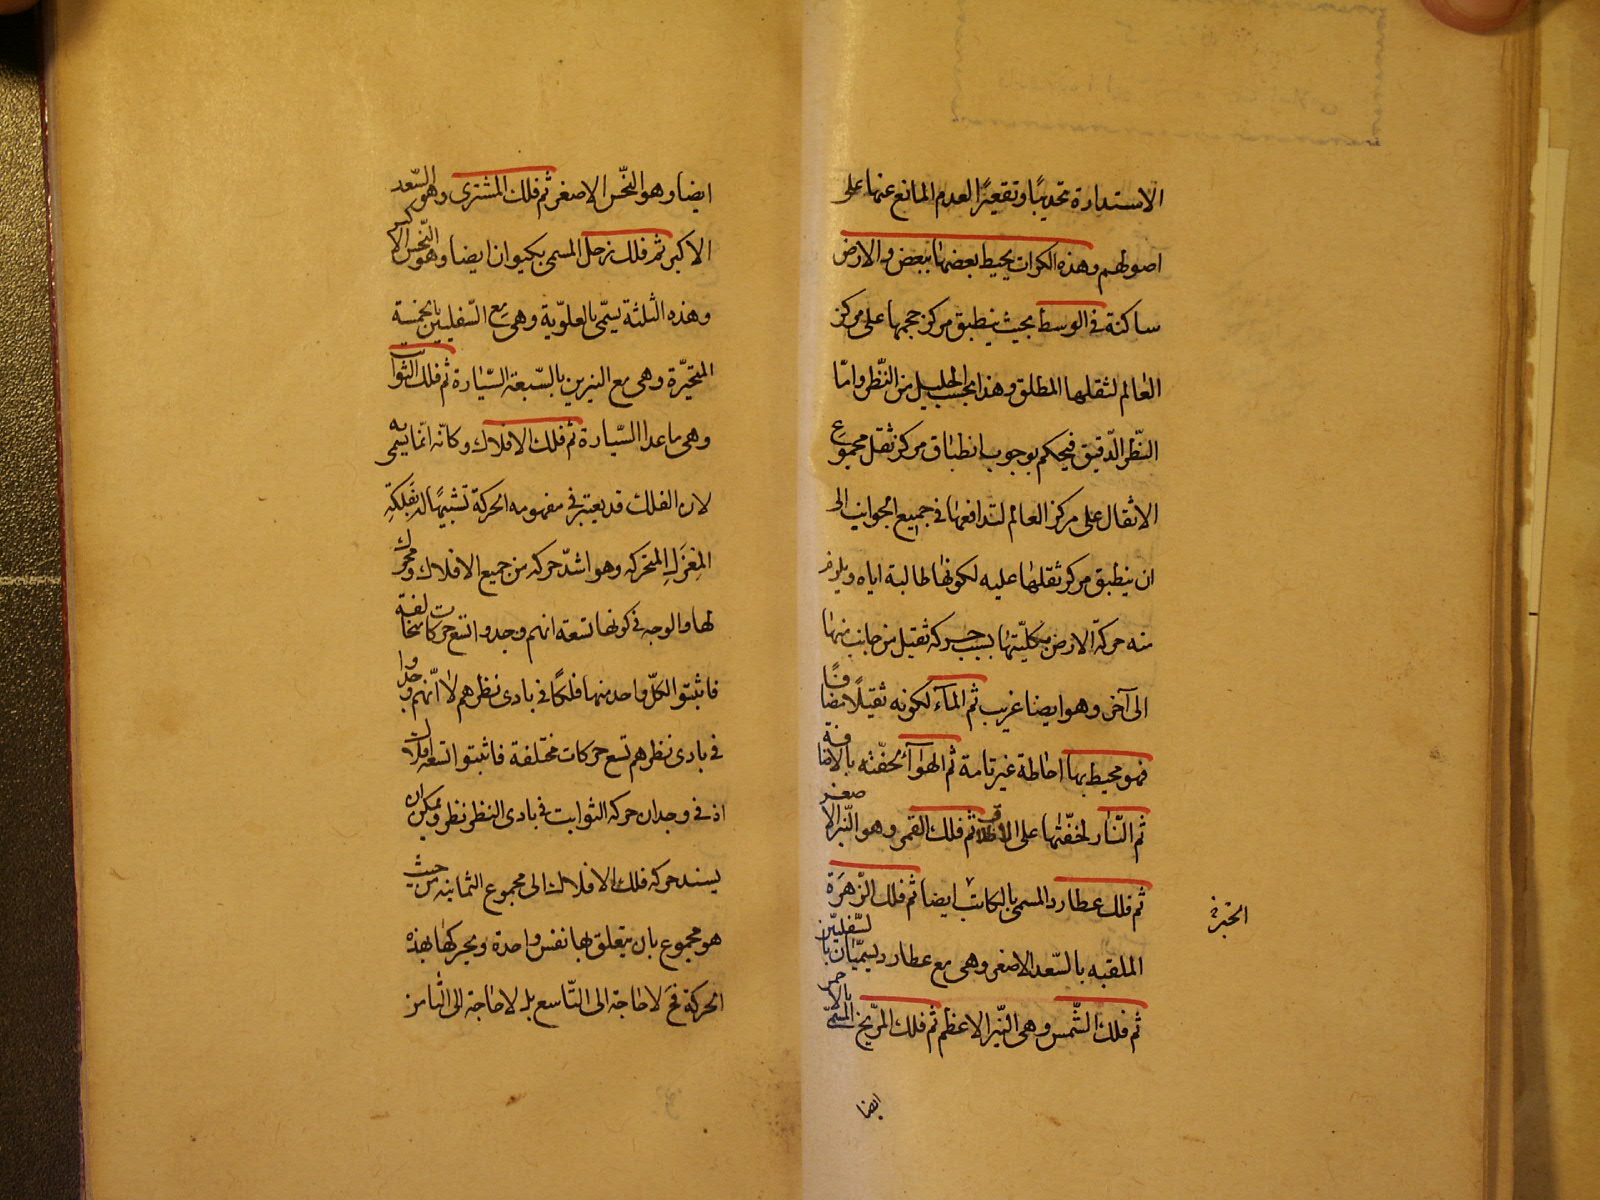 الاستدارة تحديبًا وتقعيرًا لعدم المانع عنها على
اصولهم وهذه الكرات يحيط بعضها ببعض والارض
ساكنة فى الوسط بحيث ينطبق مركز حجمها على مركز
العالم لثقلها المطلق وهذا بحسب الجليل من النّظر وامّا
النّظر الدّقيق فيحكم بوجوب انطباق مركز ثقل مجموع
الاثقال على مركز العالم لتدافعها فى جميع الجوانب الى
ان ينطبق مركز ثقلها عليه لكونها طالبة اياه ويلزم
منه حركة الارض بكليّتها بسبب حركة ثقيل من جانب منها
الى آخر وهو ايضا غريب ثم المآء لكونه ثقيلًا مضافًا
فهو محيط بها احاطة غير تامة ثم الهوآء لخفّته بالاضافة
ثم النّار لخفّتها على الاطلاق ثم فلك القمر وهو النّير الاصغر
ثم فلك عطارد المسمى بالكاتب ايضا ثم فلك الزّهرة
الملقبه بالسّعد الاصغر وهى مع عطارد يسميّان بالسّفليّين
ثم فلك الشّمس وهى النيّر الاعظم ثم فلك المرّيخ المسمّى بالاحمر
ايضا
ايضا وهو النّحس الاصغر ثم فلك المشترى وهو السّعد
الاكبر ثم فلك زحل المسمى بكيوان ايضا وهو النّحس الاكبر
وهذه الثلثة يسمّى بالعلويّة وهى مع السّفليين بالخمسة
المتحيّرة وهى مع النيرين بالسّبعة السّيارة ثم فلك الثوابت
وهى ما عدا السّيارة ثم فلك الافلاك وكانّه انّما يسمى به
لان الفلك قد يعتبر فى مفهومه الحركة تشبيهًا له بفلكة
المِغزَلِ المتحركه وهو اشدّ حركه من جميع الافلاك ومحرك
لها والوجه فى كونها تسعة انهم وجدوا تسع حركات مخالفة
فاثبتوا لكلّ واحد منها فلكًا فى بادى نظرهم لا انّهم وجدوا
فى بادى نظرهم تسع حركات مختلفة فاثبتوا تسعة افلاك
اذ فى وجدان حركه الثوابت فى بادى النظر نظر ويمكن ان
يسند حركه فلك الافلاك الى مجموع الثمانيه من حيث
هو مجموع بان يتعلق بها نفس واحدة ويحركها بهذه
الحركة فح لا حاجة الى التّاسع بل لا حاجة الى الثامن